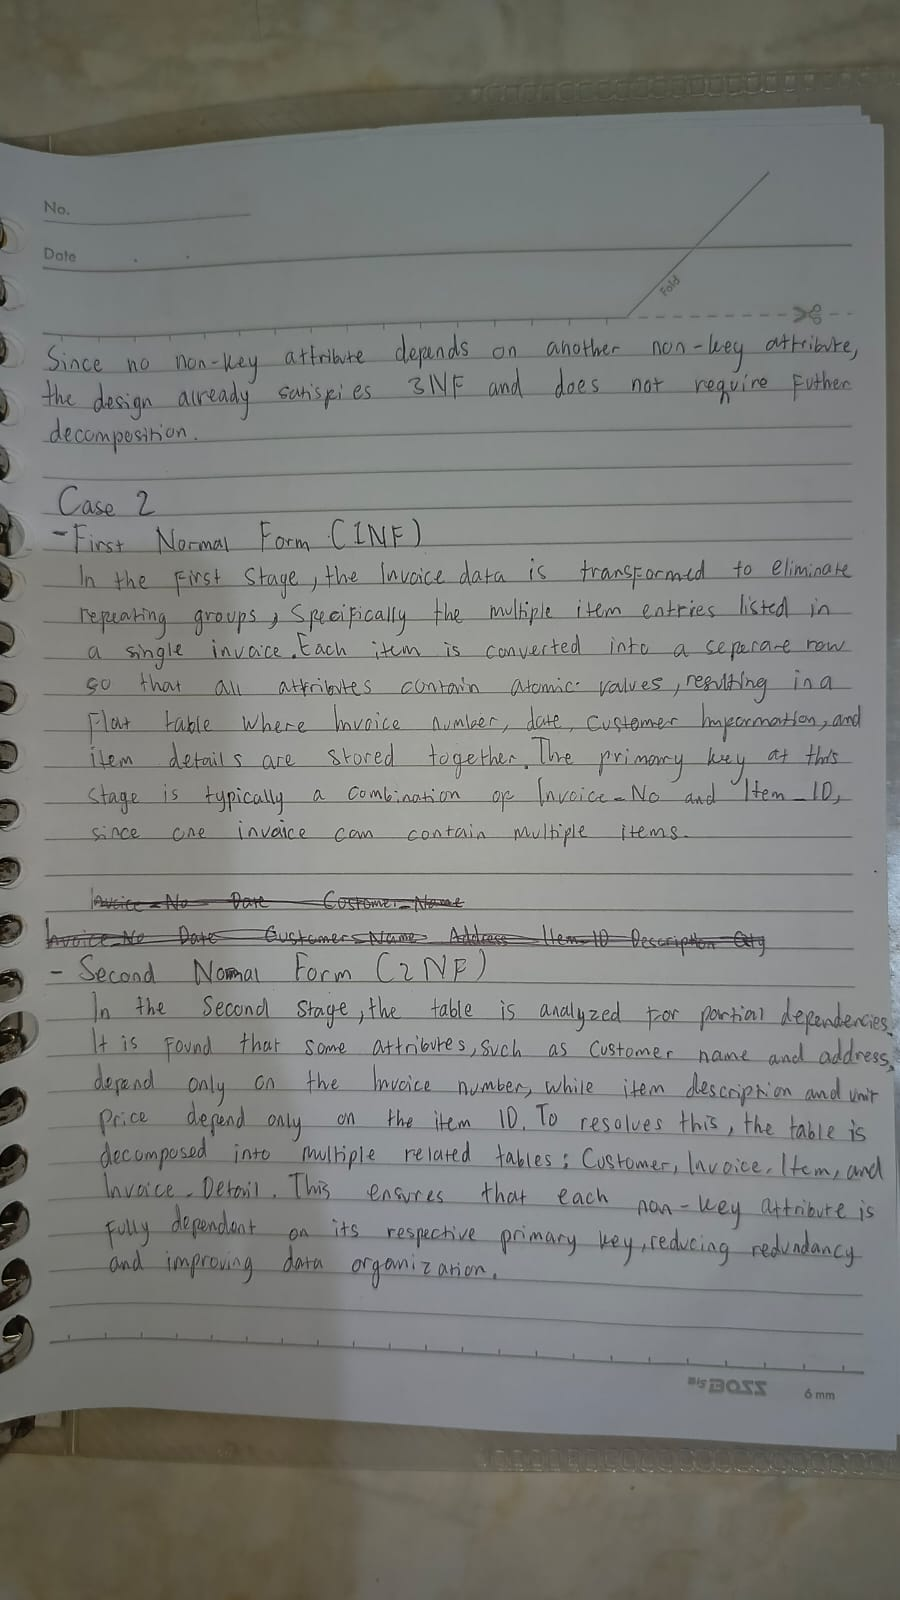 No.
Date
Fold
Since no non-key attribute depends on another non-key attribute,
the design already satispies 3NF and does not require Futher
decomposition.
Case 2
- First Normal Form (1NF)
In the First Stage, the Invoice data is transformed to eliminate
repeating groups, Specifically the multiple item entries listed in
a single invoice. Each item is converted into a seperate row
so that all attributes contain atomic values, resulting in a
Flat table where Invoice number, date, customer Information, and
item details are stored together. The primary key at this
stage is typically a combination of Invoice_No and Item_ID,
since one invoice can contain multiple items.
Invoice_No Date Costomer_Name
Invoice_No Date Customers Name Address Item_ID Description Qty
- Second Normal Form (2NF)
In the Second Stage, the table is analyzed For partial dependencies.
It is Found that some attributes, such as customer name and address,
depend only on the Invoice number, while item description and unit
Price depend only on the item ID. To resolves this, the table is
decomposed into multiple related tables: Customer, Invoice, Item, and
Invoice_Detail. This ensures that each non-key attribute is
Fully dependent on its respective primary key, reducing redundancy
and improving data organization.
BOSS 6 mm